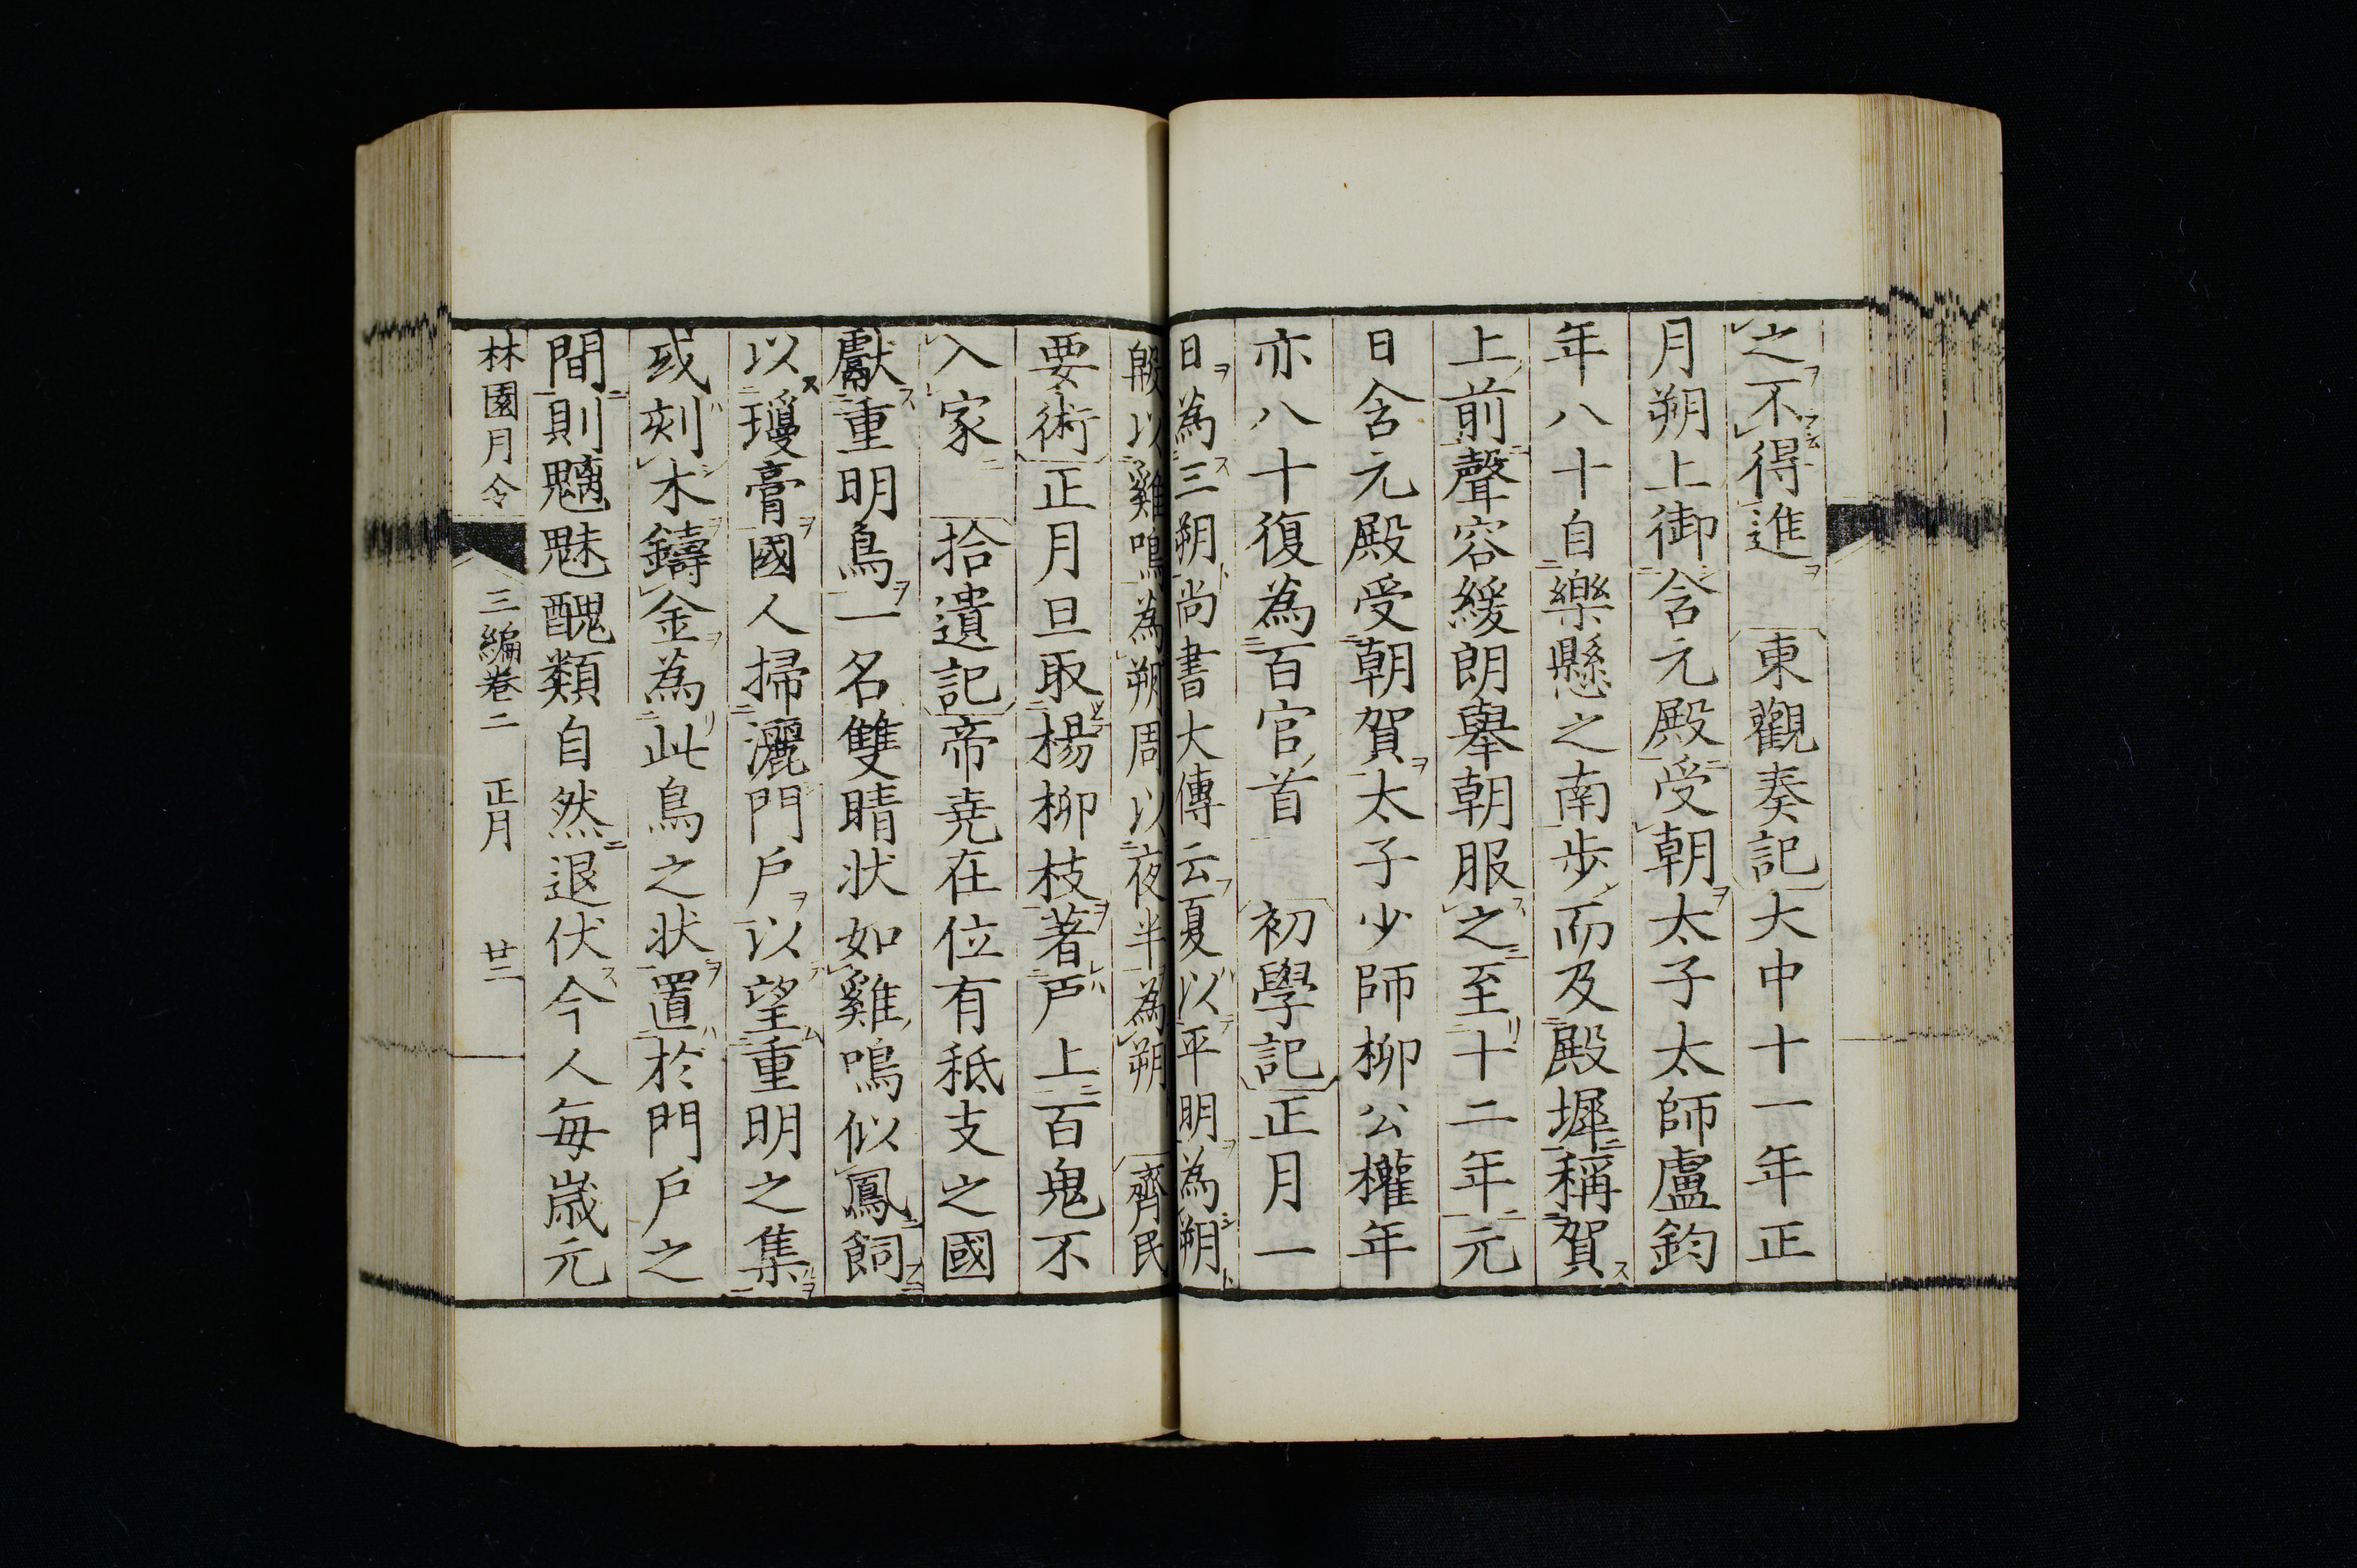 之不得進　東觀奏記大中十一年正
月朔上御含元殿受朝太子太師盧鈞
年八十自樂懸之南步而及殿墀稱賀
上前聲容緩朗舉朝服之至十二年元
日含元殿受朝賀太子少師柳公權年
亦八十復為百官首　初學記正月一
日為三朔尚書大傳云夏以平明為朔
殷以雞鳴為朔周以夜半為朔　齊民
要術正月旦取楊柳枝著戸上百鬼不
入家　拾遺記帝堯在位有秪支之國
獻重明鳥一名雙睛状如雞鳴似鳳飼
以瓊膏國人掃灑門戶以望重明之集
或刻木鑄金為此鳥之状置於門戶之
間則魑魅醜類自然退伏今人每歲元
林園月令　三編卷二　正月　廿二